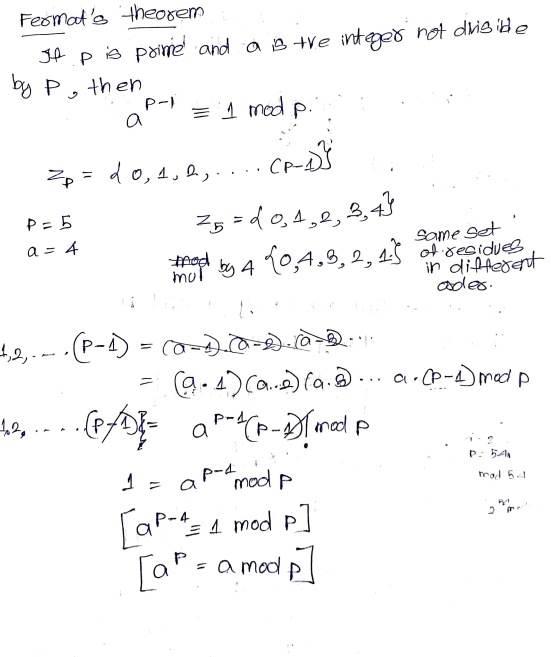 Fermat's theorem
If p is prime and a is +ve integer not divisible
by P, then
a^{P-1} ≡ 1 mod p.
Z_p = {0, 1, 2, .... (P-1)}
P = 5
Z_5 = {0, 1, 2, 3, 4}
a = 4
mul by 4 {0, 4, 3, 2, 1}
same set
of residues
in different
order.
1, 2, --- . (P-1) = (a-1).(a-2).(a-3)...
= (a.1)(a.2)(a.3)... a.(P-1) mod p
1, 2, .... (P-1)! = a^{P-1}(P-1)! mod p
1 = a^{P-1} mod p
[a^{P-1} ≡ 1 mod p]
[a^P = a mod p]